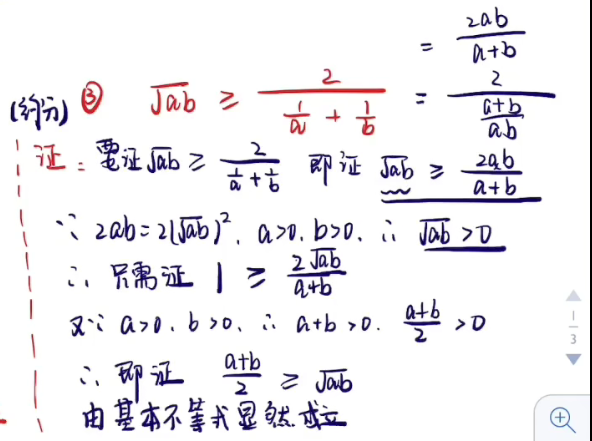 = 2ab/(a+b)
(约分) ③ √ab ≥ 2/(1/a + 1/b) = 2/((a+b)/ab)
证: 要证√ab ≥ 2/(1/a + 1/b) 即证 √ab ≥ 2ab/(a+b)
∵ 2ab=2(√ab)², a>0, b>0, ∴ √ab >0
∴ 只需证 1 ≥ 2√ab/(a+b)
又∵ a>0, b>0, ∴ a+b >0, (a+b)/2 >0
∴ 即证 (a+b)/2 ≥ √ab
由基本不等式显然成立
1/3